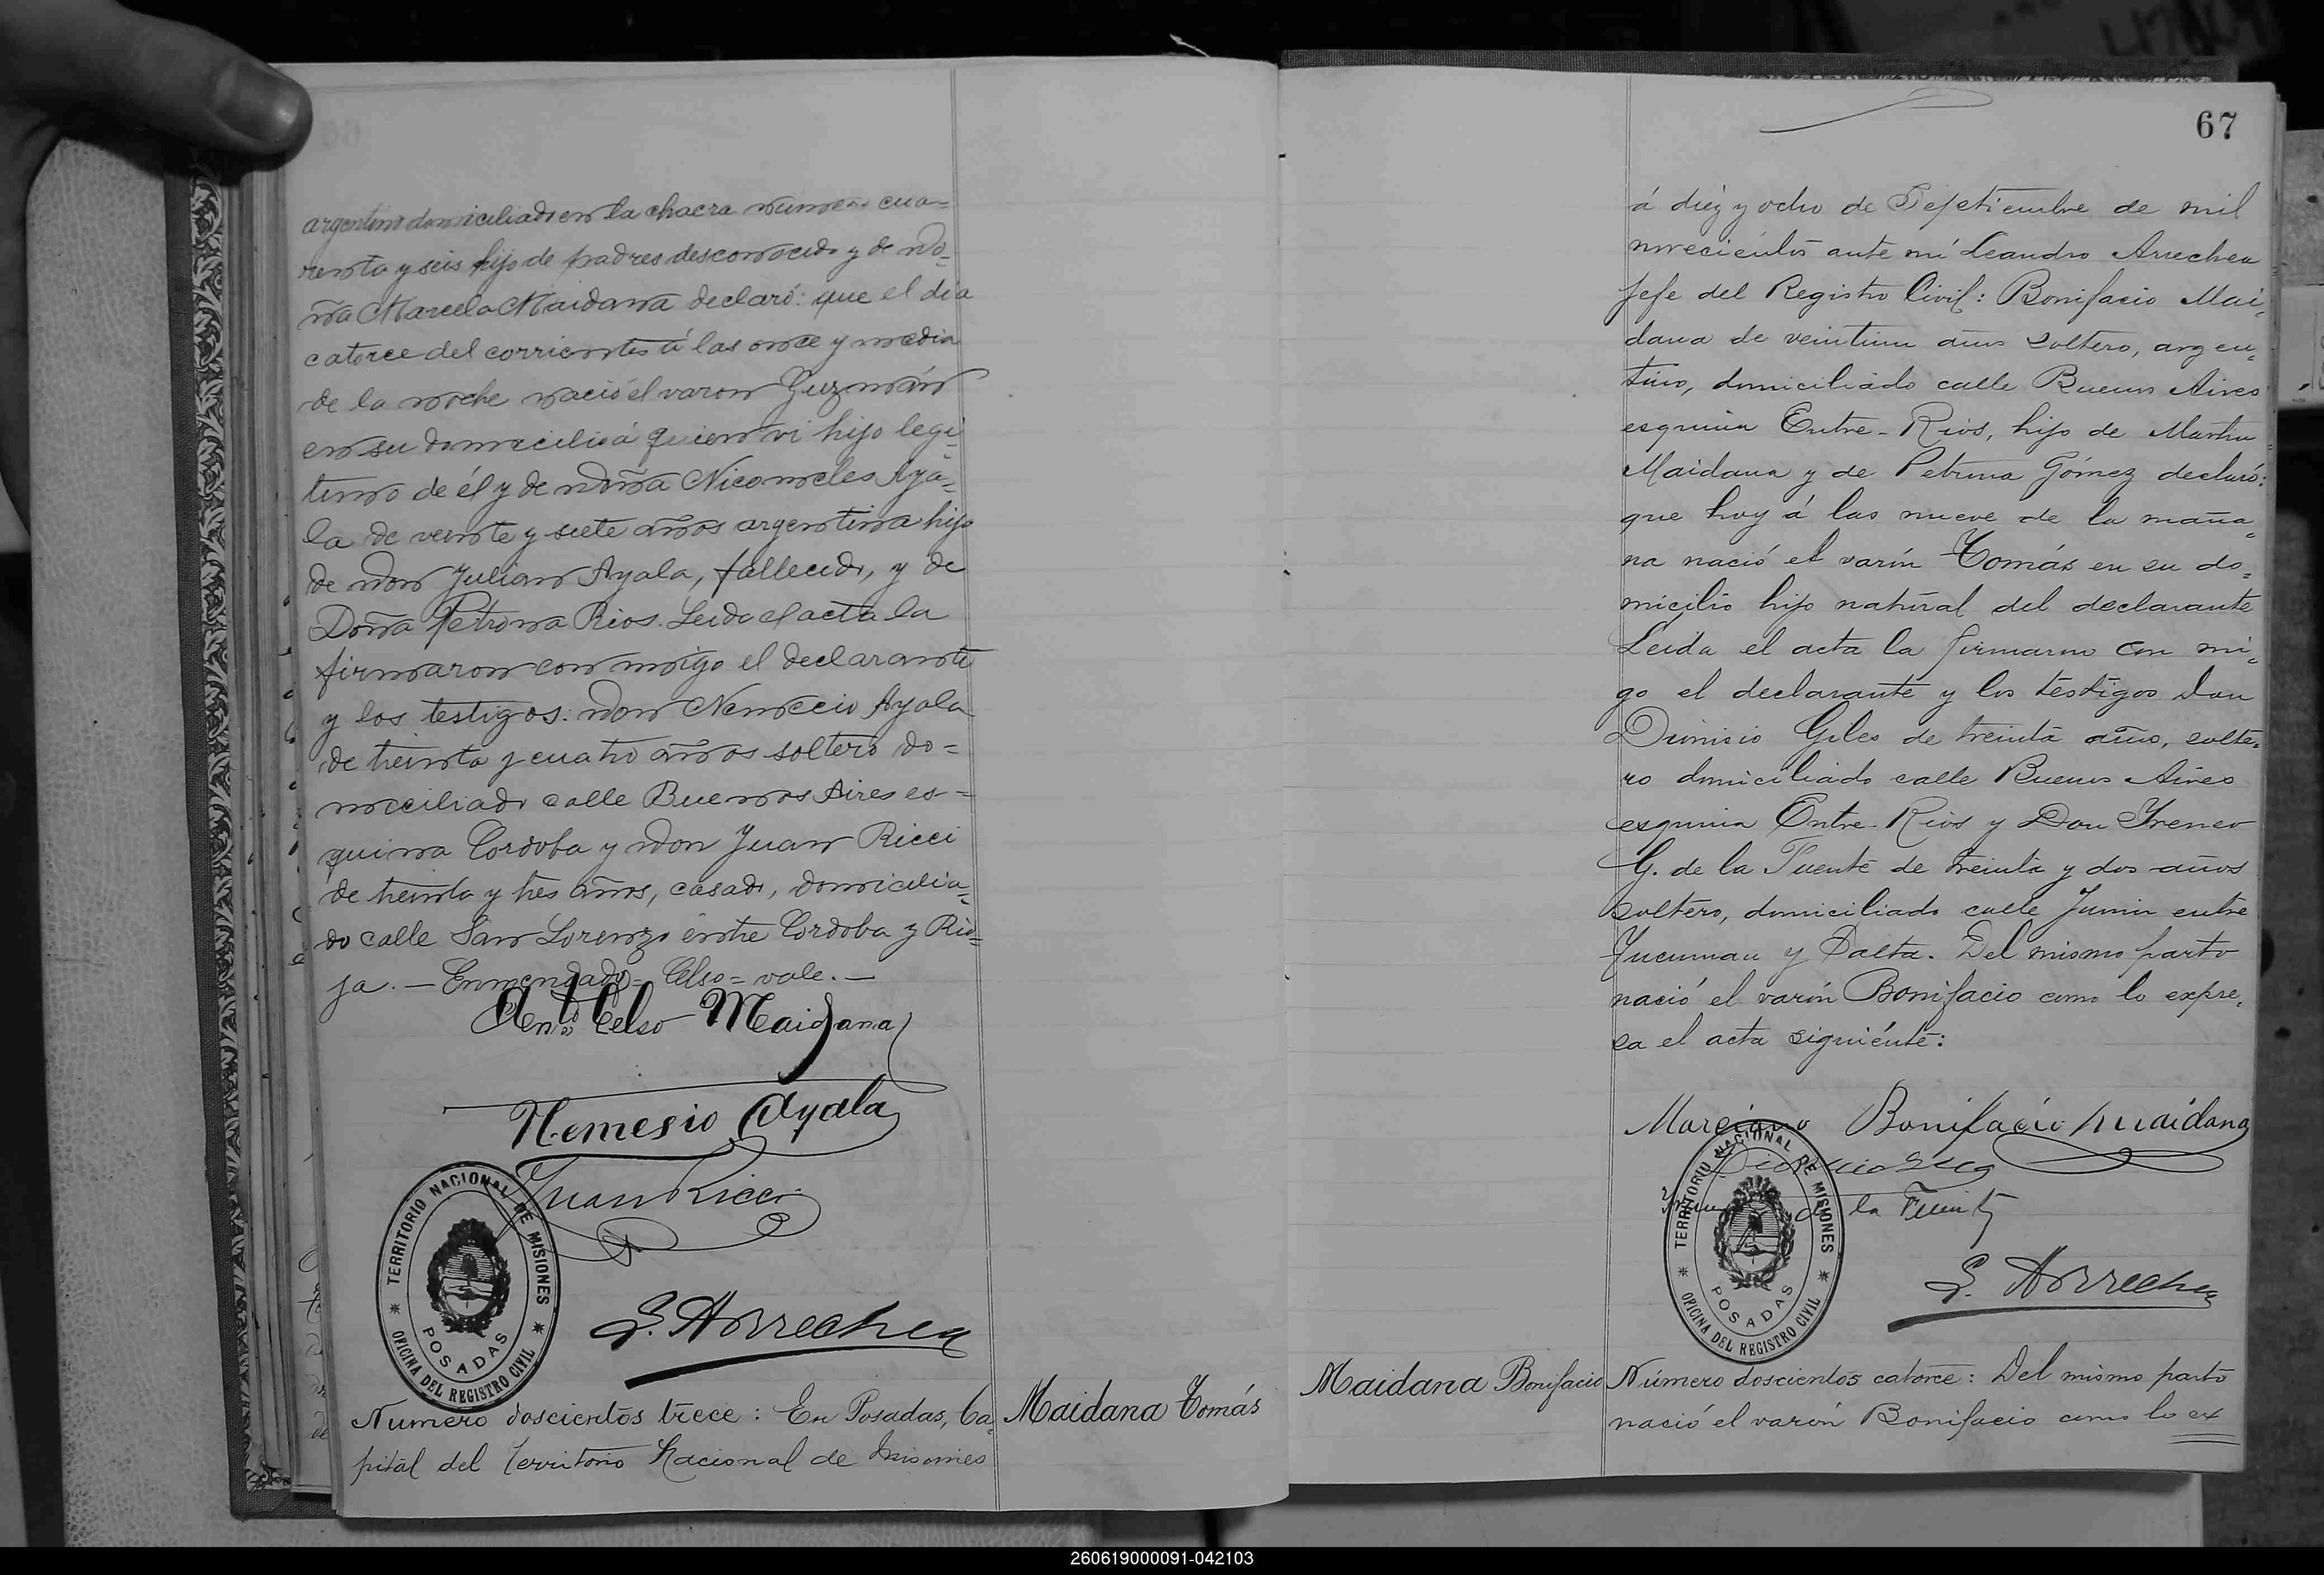 argentino domiciliado en la chacra numero cua=
renta y seis hijo de padres desconocido y de Do=
ña Marcela Maidana declaró: que el dia
catorce del corriente á las once y media
de la noche nació el varon Guzmán
en su domicilio á quien vi hijo legi=
timo de él y de Doña Nicomeles Aya=
la de veinte y siete años argentina hija
de Don Julian Ayala, fallecido, y de
Doña Petrona Rios. Leida el acta la
firmaron conmigo el declarante
y los testigos: Don Nemecio Ayala
de treinta y cuatro años soltero do=
miciliado calle Buenos Aires es=
quina Cordoba y Don Juan Ricci
de treinta y tres años, casado, domicilia=
do calle San Lorenzo entre Cordoba y Rio=
ja. — Enmendado = Celso = vale. —
Celso Maidana
Nemesio Ayala
Juan Ricci
TERRITORIO NACIONAL DE MISIONES
POSADAS
OFICINA DEL REGISTRO CIVIL
L. Arrechea
Numero doscientos trece: En Posadas, Ca=
pital del Territorio Nacional de Misiones
Maidana Tomás
67
á diez y ocho de Septiembre de mil
novecientos ante mi Leandro Arrechea
Jefe del Registro Civil: Bonifacio Mai=
dana de veintiun años soltero, argen=
tino, domiciliado calle Buenos Aires
esquina Entre-Rios, hijo de Martin
Maidana y de Petrona Gómez declaró:
que hoy á las nueve de la maña=
na nació el varón Tomás en su do=
micilio hijo natural del declarante
Leida el acta la firmaron con mi=
go el declarante y los testigos Don
Dionisio Giles de treinta años, solte=
ro domiciliado calle Buenos Aires
esquina Entre-Rios y Don Ireneo
G. de la Fuente de treinta y dos años
soltero, domiciliado calle Junin entre
Tucuman y Salta. Del mismo parto
nació el varón Bonifacio como lo expre=
sa el acta siguiente:
Marciano Bonifacio Maidana
de la Fuente
TERRITORIO NACIONAL DE MISIONES
POSADAS
OFICINA DEL REGISTRO CIVIL
L. Arrechea
Maidana Bonifacio
Número doscientos catorce: Del mismo parto
nació el varón Bonifacio como lo ex
260619000091-042103